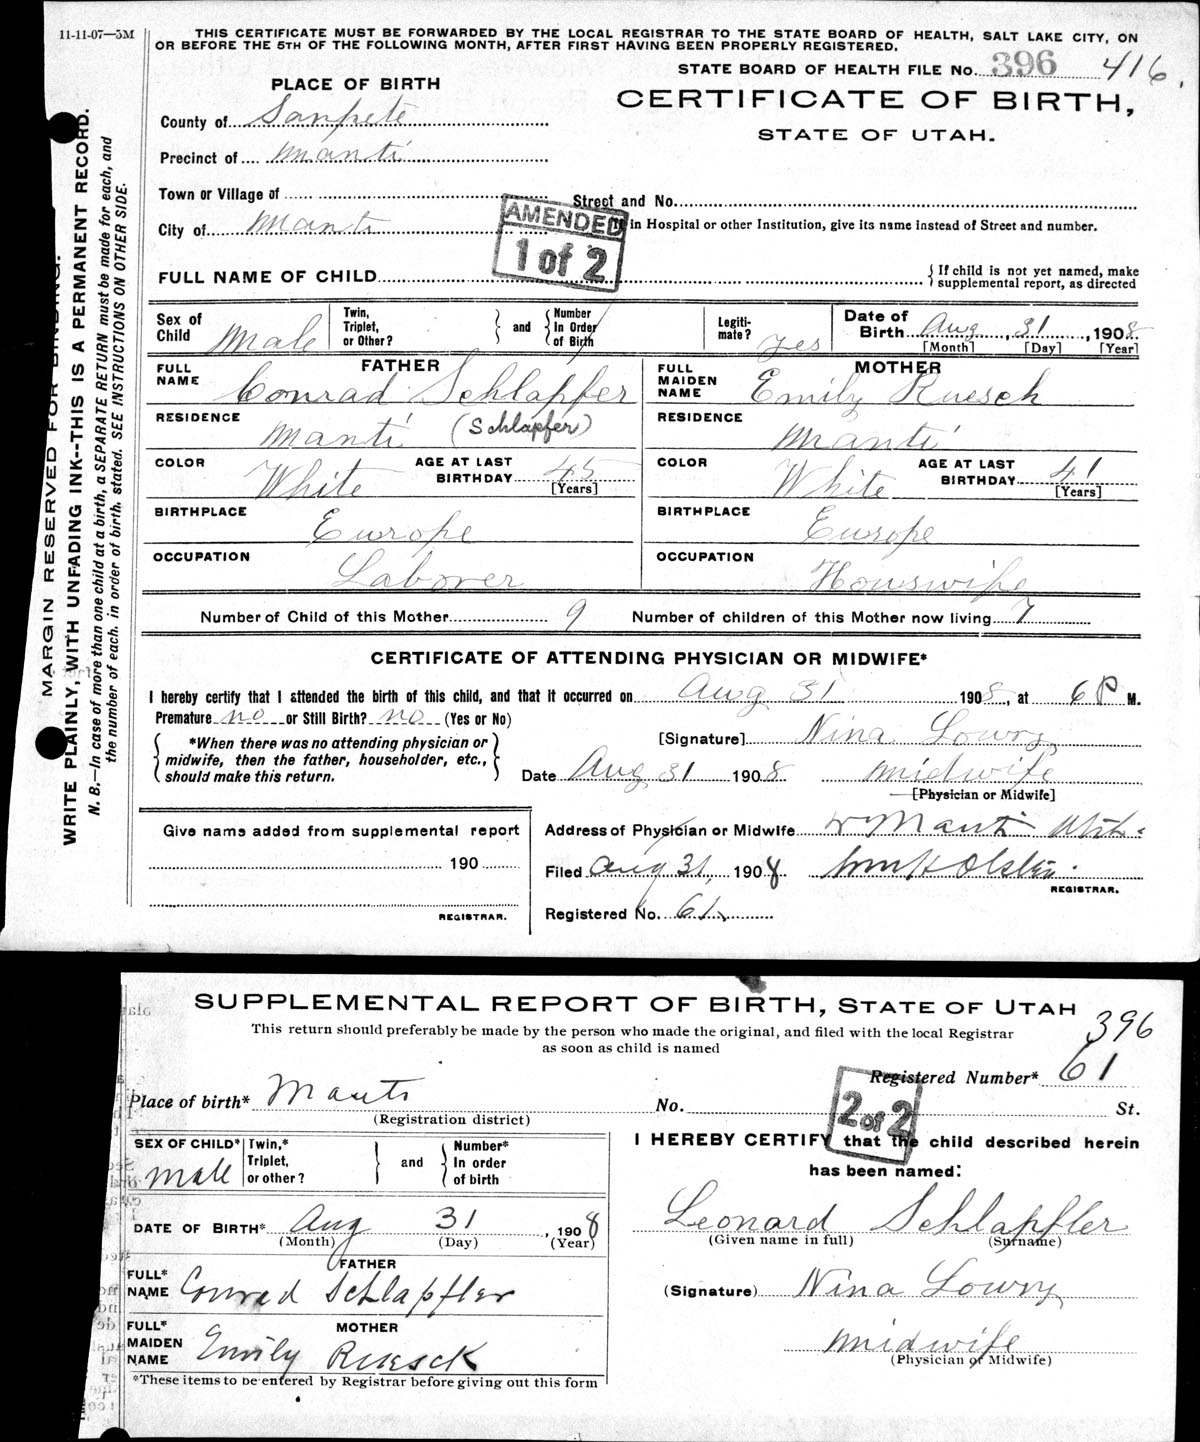 11-11-07—5M
THIS CERTIFICATE MUST BE FORWARDED BY THE LOCAL REGISTRAR TO THE STATE BOARD OF HEALTH, SALT LAKE CITY, ON
OR BEFORE THE 5TH OF THE FOLLOWING MONTH, AFTER FIRST HAVING BEEN PROPERLY REGISTERED.
STATE BOARD OF HEALTH FILE No. 396 416
PLACE OF BIRTH
CERTIFICATE OF BIRTH,
STATE OF UTAH.
County of Sanpete
Precinct of Manti
Town or Village of
Street and No.
AMENDED
1 of 2
City of Manti
in Hospital or other Institution, give its name instead of Street and number.
FULL NAME OF CHILD
{ If child is not yet named, make
supplemental report, as directed
Sex of
Child Male
Twin,
Triplet,
or Other?
} and {
Number
In Order
of Birth
Legiti-
mate? yes
Date of
Birth Aug 31, 1908
[Month] [Day] [Year]
FATHER
FULL
NAME Conrad Schlapfer
RESIDENCE
Manti (Schlapfer)
COLOR White
AGE AT LAST
BIRTHDAY 45
[Years]
BIRTHPLACE
Europe
OCCUPATION
Laborer
MOTHER
FULL
MAIDEN
NAME Emily Ruesch
RESIDENCE
Manti
COLOR White
AGE AT LAST
BIRTHDAY 41
[Years]
BIRTHPLACE
Europe
OCCUPATION
Houswife
Number of Child of this Mother 9 Number of children of this Mother now living 7
CERTIFICATE OF ATTENDING PHYSICIAN OR MIDWIFE*
I hereby certify that I attended the birth of this child, and that it occurred on Aug 31 1908, at 6 P M.
Premature no or Still Birth? no (Yes or No)
{ *When there was no attending physician or
midwife, then the father, householder, etc.,
should make this return. }
[Signature] Nina Lowry
Date Aug 31 1908 midwife
[Physician or Midwife]
Give name added from supplemental report
190
REGISTRAR.
Address of Physician or Midwife Manti Utah
Filed Aug 31, 1908 Wm H Olsten
REGISTRAR.
Registered No. 61
MARGIN RESERVED FOR BINDING.
WRITE PLAINLY, WITH UNFADING INK--THIS IS A PERMANENT RECORD.
N. B.—In case of more than one child at a birth, a SEPARATE RETURN must be made for each, and
the number of each, in order of birth, stated. SEE INSTRUCTIONS ON OTHER SIDE.
SUPPLEMENTAL REPORT OF BIRTH, STATE OF UTAH
This return should preferably be made by the person who made the original, and filed with the local Registrar
as soon as child is named
396
Registered Number* 61
Place of birth* Manti
(Registration district)
No. St.
2 of 2
SEX OF CHILD*
Male
Twin,*
Triplet,
or other?
} and {
Number*
In order
of birth
DATE OF BIRTH* Aug 31, 1908
(Month) (Day) (Year)
FATHER
FULL*
NAME Conrad Schlapfler
MOTHER
FULL*
MAIDEN
NAME Emily Ruesck
*These items to be entered by Registrar before giving out this form
I HEREBY CERTIFY that the child described herein
has been named:
Leonard Schlapfler
(Given name in full) (Surname)
(Signature) Nina Lowry
midwife
(Physician or Midwife)